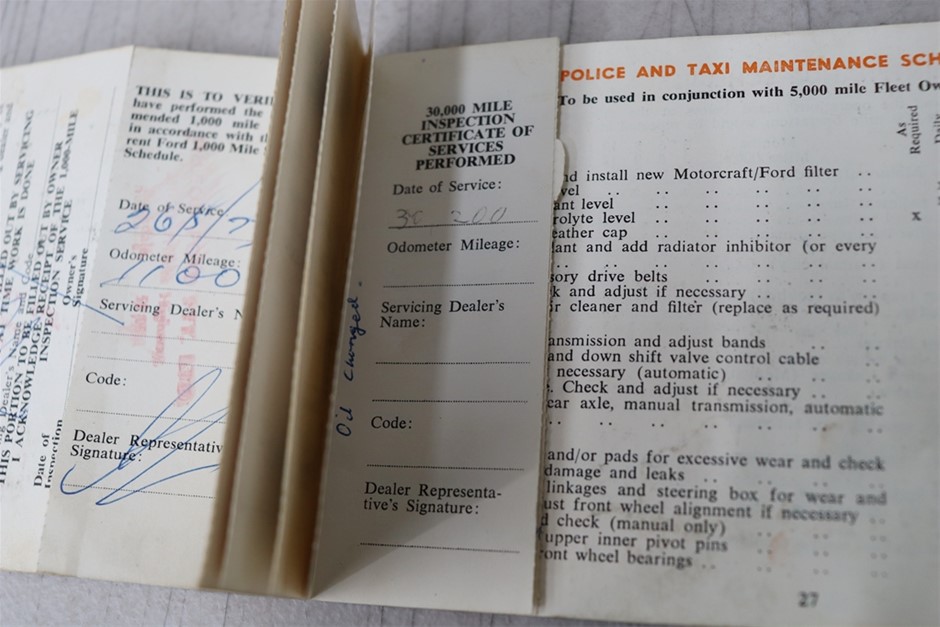 THIS PORTION TO BE FILLED OUT BY SERVICING
AT TIME WORK IS DONE
I ACKNOWLEDGE RECEIPT OF THE 1,000 MILE
INSPECTION SERVICE
Date of
Inspection
Owner's
Signature
THIS IS TO VERI
have performed the
mended 1,000 mile
in accordance with t
rent Ford 1,000 Mile
Schedule.
Date of Service
Odometer Mileage:
1100
Servicing Dealer's N
Code:
Dealer Representativ
Signature:
Oil changed.
30,000 MILE
INSPECTION
CERTIFICATE OF
SERVICES
PERFORMED
Date of Service:
Odometer Mileage:
Servicing Dealer's
Name:
Code:
Dealer Representa-
tive's Signature:
POLICE AND TAXI MAINTENANCE SCH
To be used in conjunction with 5,000 mile Fleet Ow
As
Required
Daily
nd install new Motorcraft/Ford filter
vel
ant level
rolyte level x
eather cap
ant and add radiator inhibitor (or every
sory drive belts
k and adjust if necessary
r cleaner and filter (replace as required)
ansmission and adjust bands
and down shift valve control cable
necessary (automatic)
. Check and adjust if necessary
ear axle, manual transmission, automatic
and/or pads for excessive wear and check
damage and leaks
linkages and steering box for wear and
ust front wheel alignment if necessary
d check (manual only)
upper inner pivot pins
ont wheel bearings
27